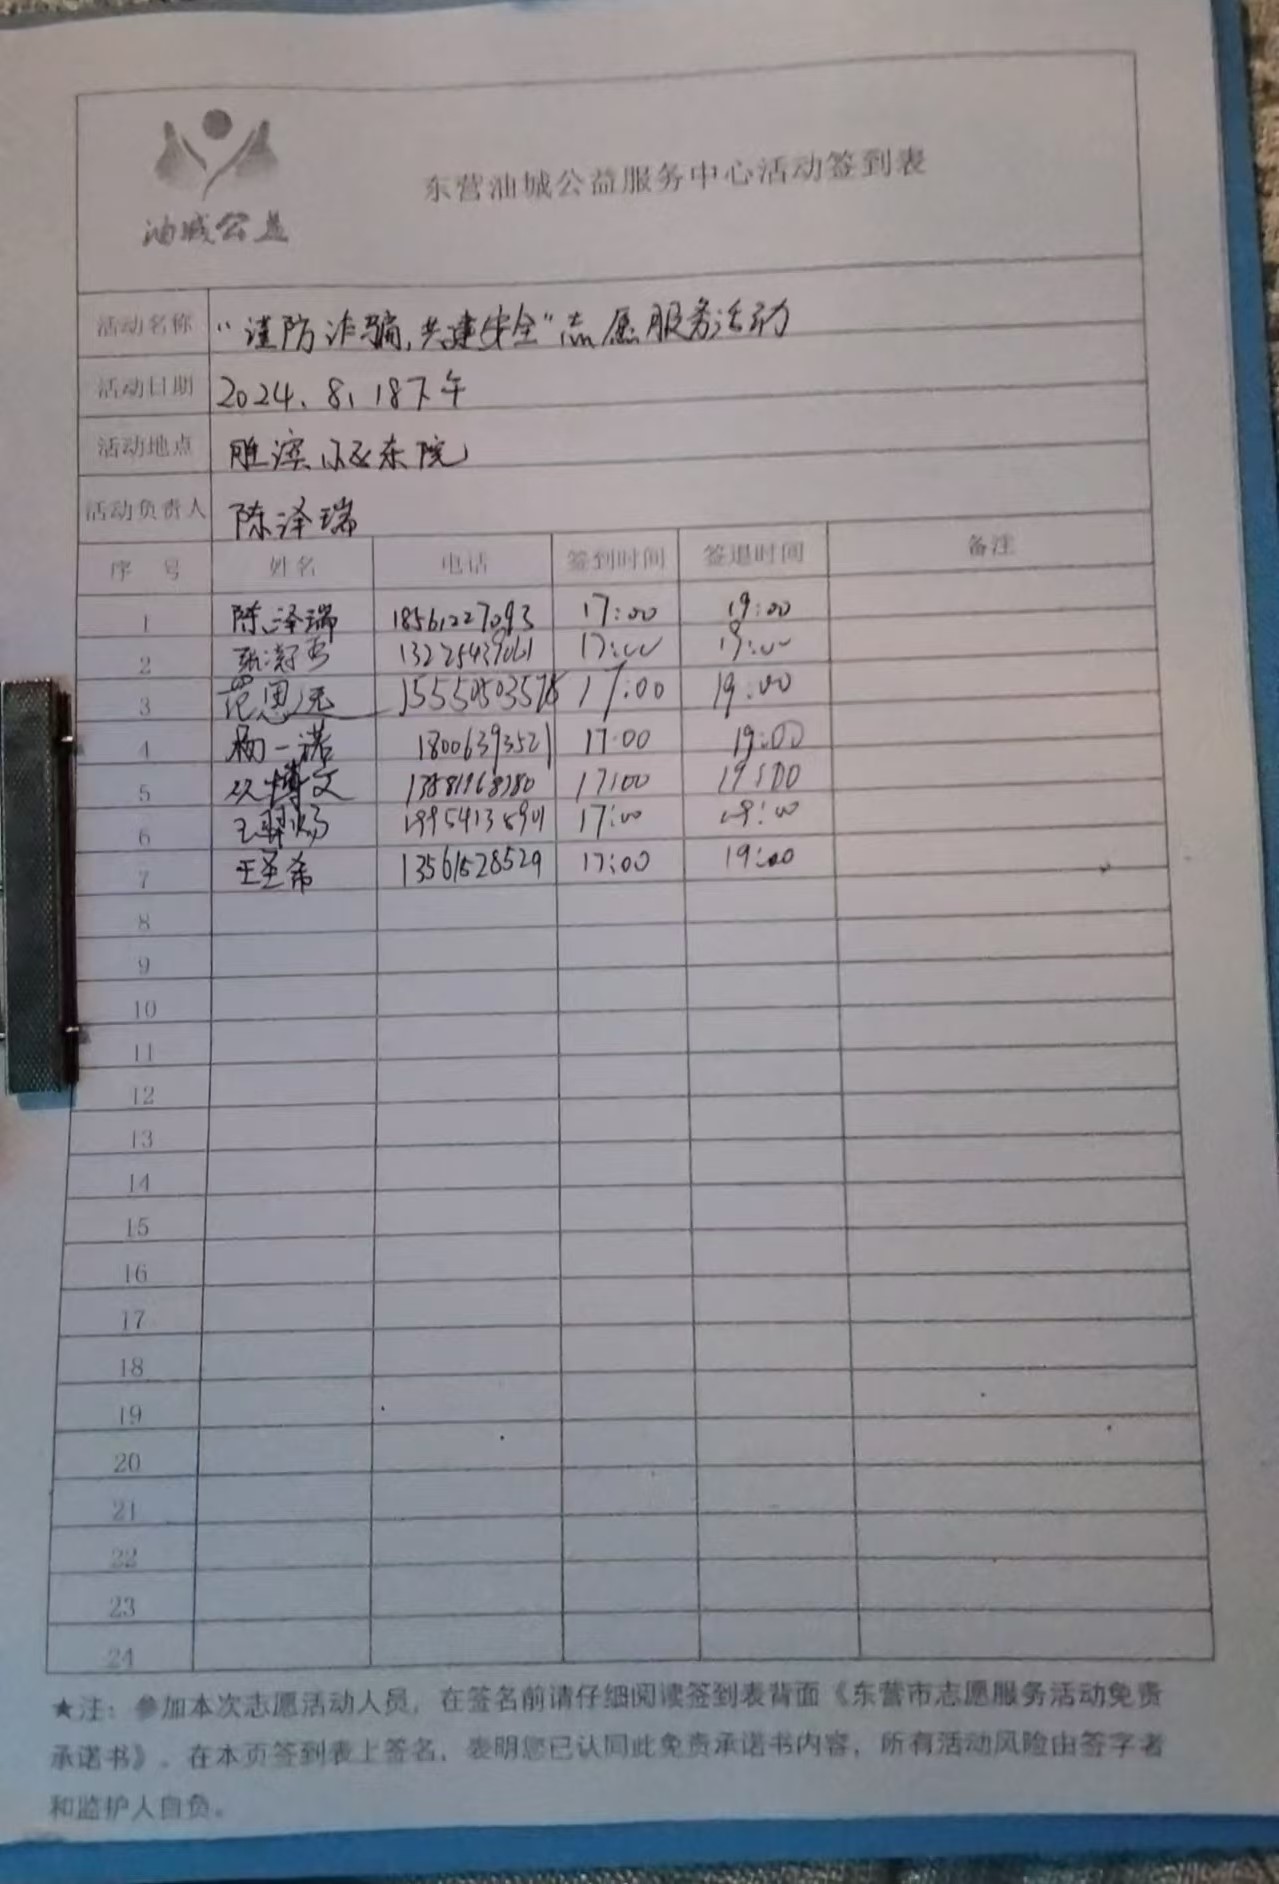 油城公益
东营油城公益服务中心活动签到表
活动名称 “谨防诈骗,共建安全”志愿服务活动
活动日期 2024、8、18下午
活动地点 胜滨小区东院
活动负责人 陈泽瑞
序 号 姓名 电话 签到时间 签退时间 备注
1 陈泽瑞 18561227093 17:00 19:00
2 17:00 19:00
3 范思远 17:00 19:00
4 杨一诺 18006393521 17:00 19:00
5 博文 17:00 19:00
6 17:00
7 王圣希 13561528529 17:00 19:00
8
9
10
11
12
13
14
15
16
17
18
19
20
21
22
23
24
★注：参加本次志愿活动人员，在签名前请仔细阅读签到表背面《东营市志愿服务活动免责
承诺书》。在本页签到表上签名，表明您已认同此免责承诺书内容，所有活动风险由签字者
和监护人自负。